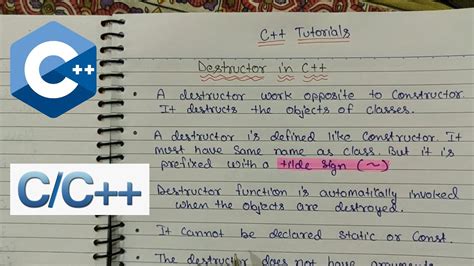 C++ Tutorials
Destructor in C++
• A destructor work opposite to constructor.
It destructs the objects of classes.
• A destructor is defined like constructor. It
must have same name as class. But it is
prefixed with a tilde sign (~)
Destructor function is automatically invoked
when the objects are destroyed.
• It cannot be declared static or const.
• The destructor does not have arguments
C++
C/C++